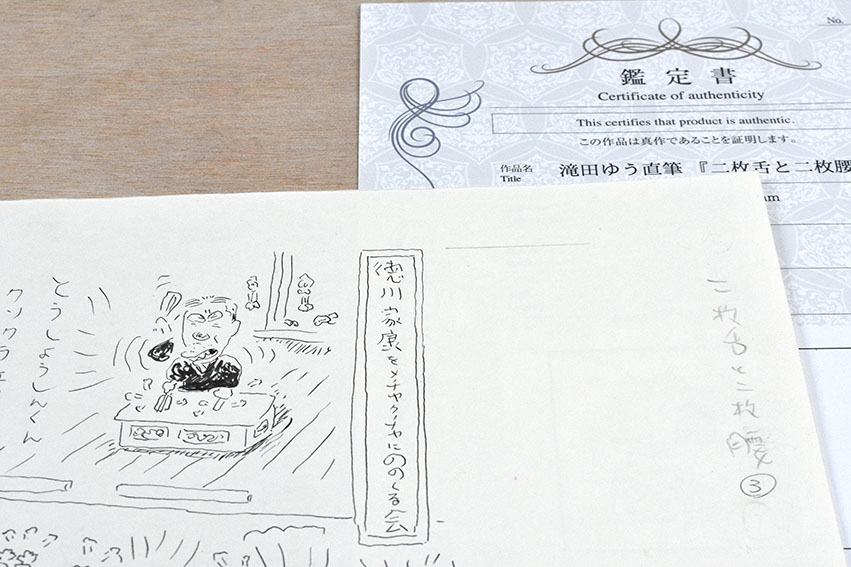 No.
鑑定書
Certificate of authenticity
This certifies that product is authentic.
この作品は真作であることを証明します。
作品名
Title
滝田ゆう直筆『二枚舌と二枚腰
二枚舌と二枚腰
③
徳川家康をメチャクチャにののしる会
とうしょうしんくん
クソクラエ